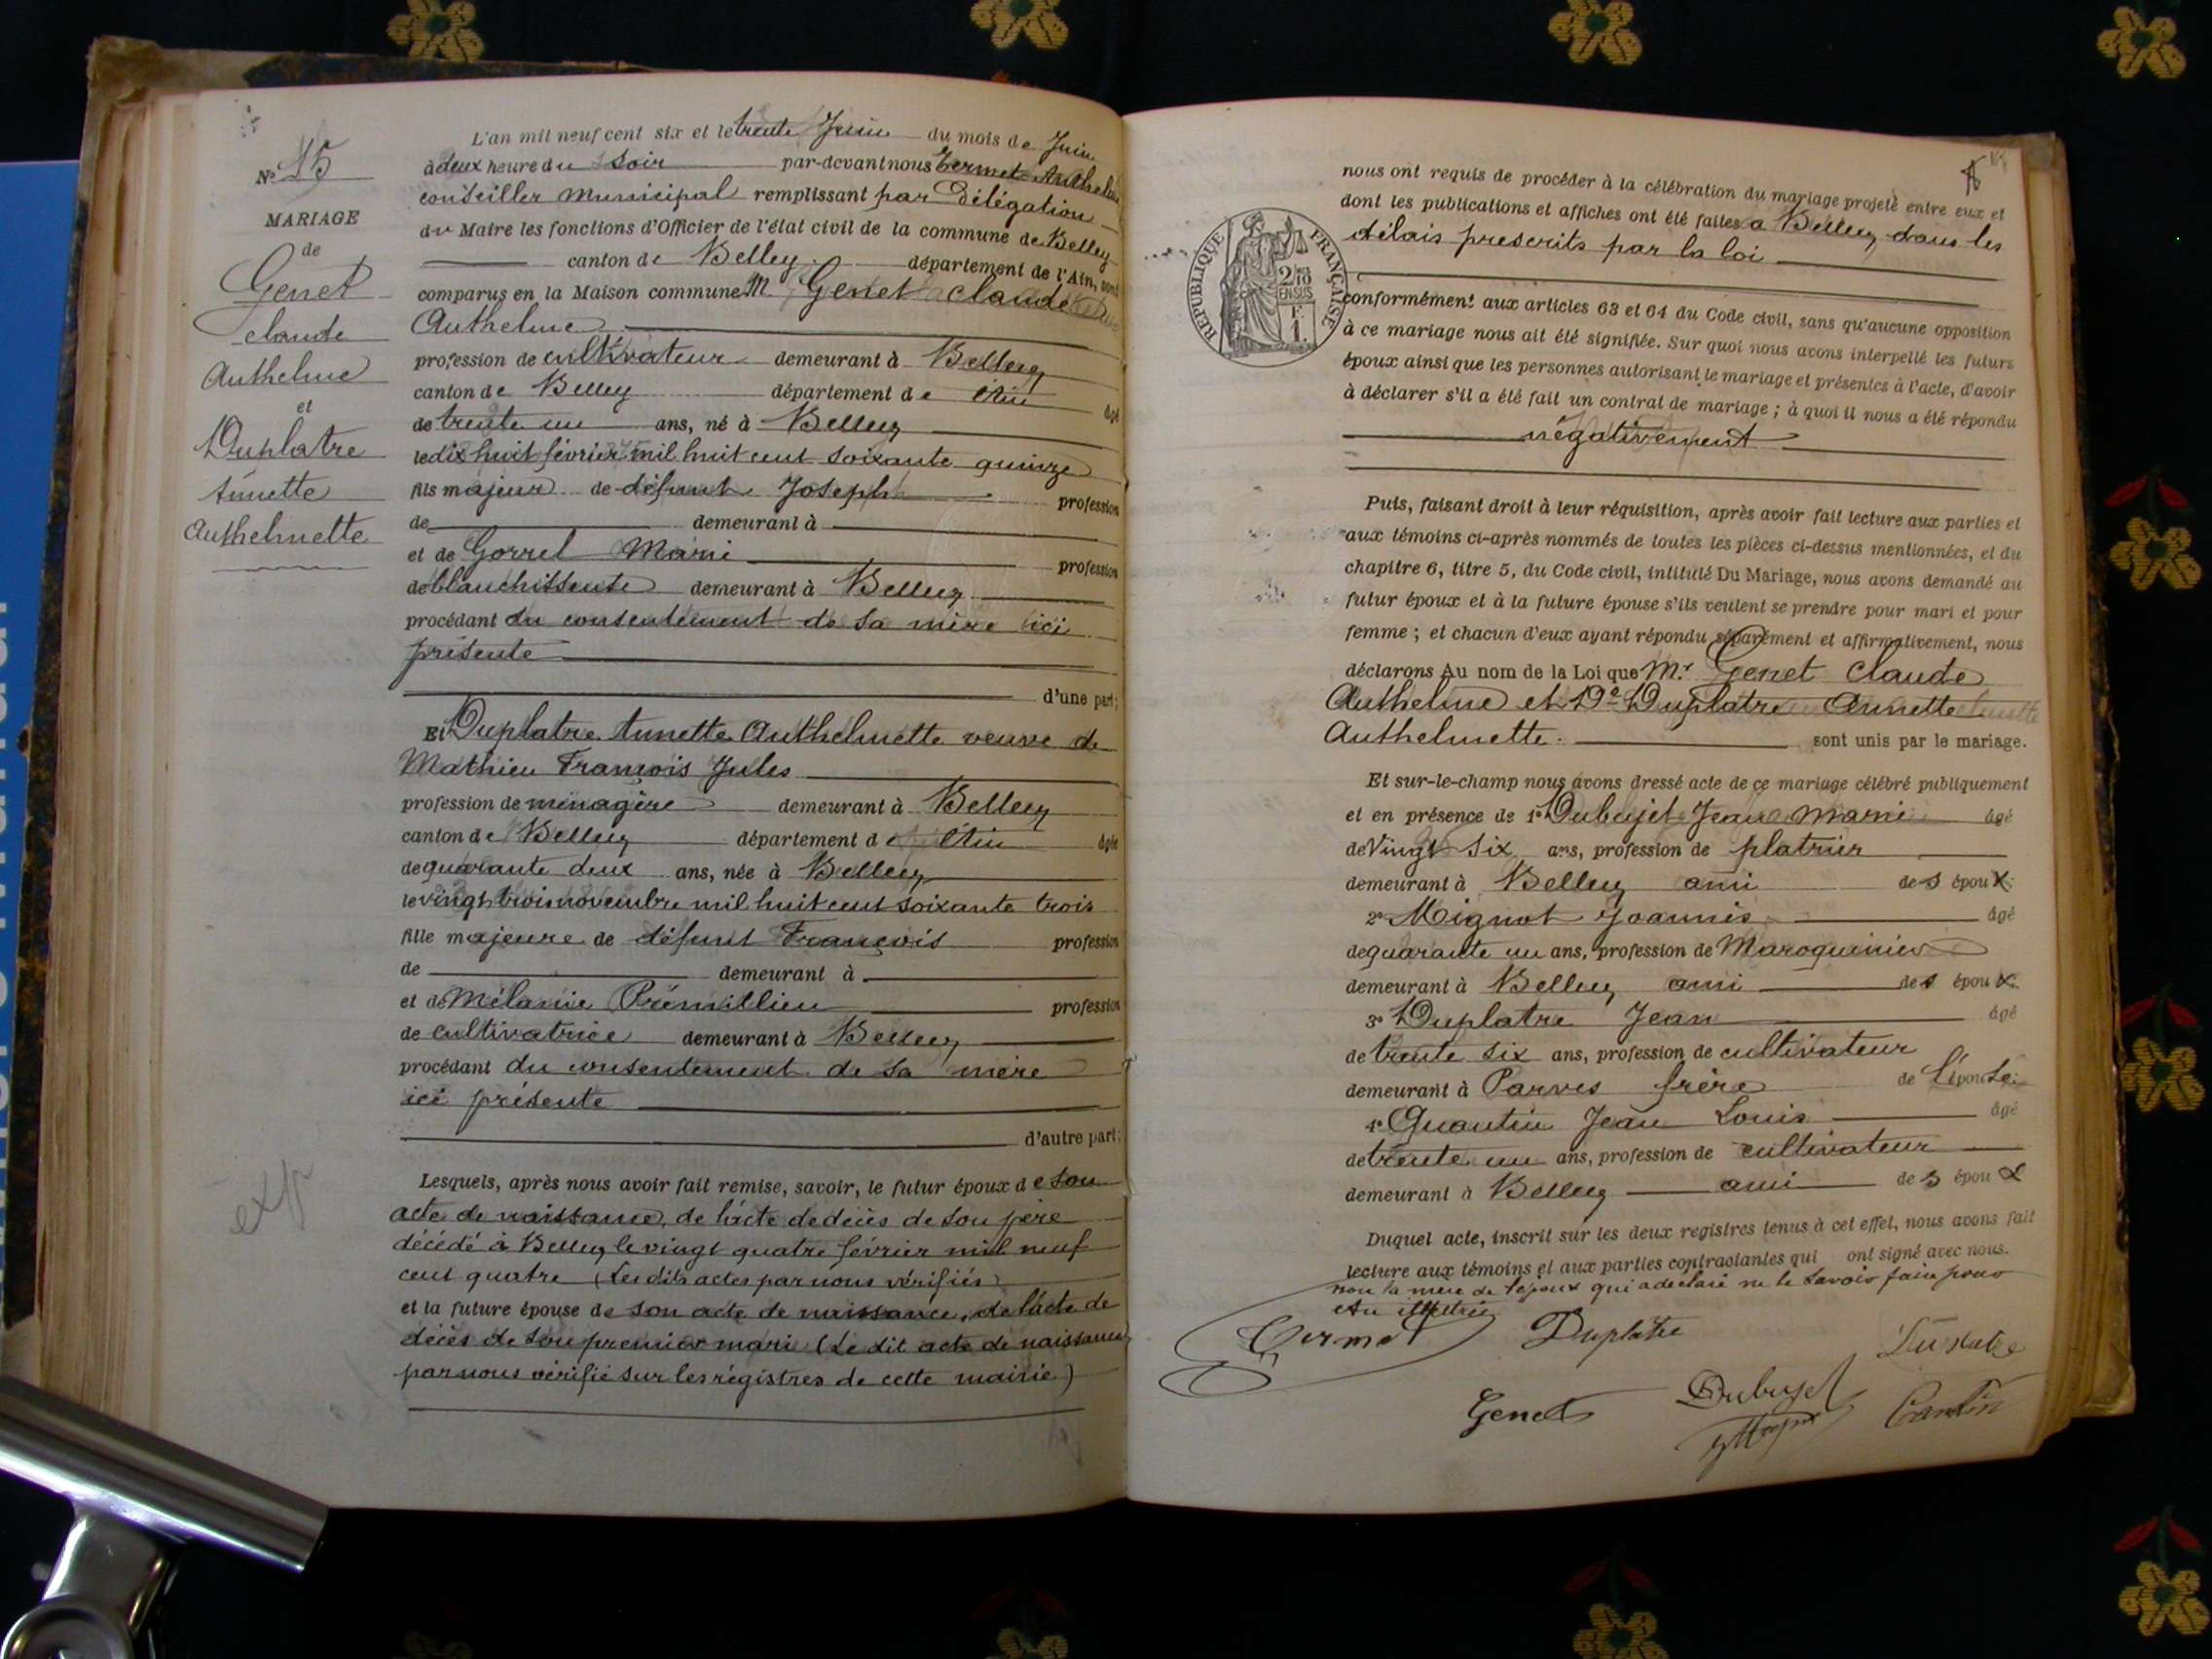 Nº 15
MARIAGE
de
Genet
Claude
Anthelme
et
Duplatre
Annette
Anthelmette
exp
L'an mil neuf cent six et le trente Juin du mois de Juin
à deux heure du soir par-devant nous Termet Anthelme
conseiller municipal remplissant par Délégation
du Maire les fonctions d'Officier de l'état civil de la commune de Belley
canton de Belley département de l'Ain, sont
comparus en la Maison commune M. Genet Claude
Anthelme
profession de cultivateur demeurant à Belley
canton de Belley département de Ain âgé
de trente un ans, né à Belley
le dix huit février mil huit cent soixante quinze
fils majeur de défunt Joseph profession
de demeurant à
et de Gorrel Marie profession
de blanchisseuse demeurant à Belley
procédant du consentement de sa mère ici
présente
d'une part;
Et Duplatre Annette Anthelmette veuve de
Mathieu François Jules
profession de ménagère demeurant à Belley
canton de Belley département de Ain âgée
de quarante deux ans, née à Belley
le vingt trois novembre mil huit cent soixante trois
fille majeure de défunt François profession
de demeurant à
et de Mélanie Prémillieu profession
de cultivatrice demeurant à Belley
procédant du consentement de sa mère
ici présente
d'autre part;
Lesquels, après nous avoir fait remise, savoir, le futur époux de son
acte de naissance, de l'acte de décès de son père
décédé à Belley le vingt quatre février mil neuf
cent quatre (Les dits actes par nous vérifiés)
et la future épouse de son acte de naissance, de l'acte de
décès de son premier mari (Le dit acte de naissance
par nous vérifié sur les régistres de cette mairie)
nous ont requis de procéder à la célébration du mariage projeté entre eux et
dont les publications et affiches ont été faites à Belley dans les
délais prescrits par la loi
RÉPUBLIQUE FRANÇAISE
2/10
EN SUS
F.
1.
conformément aux articles 63 et 64 du Code civil, sans qu'aucune opposition
à ce mariage nous ait été signifiée. Sur quoi nous avons interpellé les futurs
époux ainsi que les personnes autorisant le mariage et présentes à l'acte, d'avoir
à déclarer s'il a été fait un contrat de mariage; à quoi il nous a été répondu
négativement
Puis, faisant droit à leur réquisition, après avoir fait lecture aux parties et
aux témoins ci-après nommés de toutes les pièces ci-dessus mentionnées, et du
chapitre 6, titre 5, du Code civil, intitulé Du Mariage, nous avons demandé au
futur époux et à la future épouse s'ils veulent se prendre pour mari et pour
femme; et chacun d'eux ayant répondu séparément et affirmativement, nous
déclarons Au nom de la Loi que Mr Genet Claude
Anthelme et De Duplatre Annette
Anthelmette. sont unis par le mariage.
Et sur-le-champ nous avons dressé acte de ce mariage célébré publiquement
et en présence de 1º Dubujet Jean Marie âgé
de Vingt six ans, profession de platrier
demeurant à Belley ami des époux;
2º Mignot Joannès âgé
de quarante un ans, profession de Maroquinier
demeurant à Belley ami des époux.
3º Duplatre Jean âgé
de trente six ans, profession de cultivateur
demeurant à Parves frère de l'épouse;
4º Quantin Jean Louis âgé
de trente un ans, profession de cultivateur
demeurant à Belley ami des époux
Duquel acte, inscrit sur les deux registres tenus à cet effet, nous avons fait
lecture aux témoins et aux parties contractantes qui ont signé avec nous.
non la mère de l'époux qui a declaré ne le savoir faire pour
Termet Duplatre Duplatre
Genet Dubujet Cantin